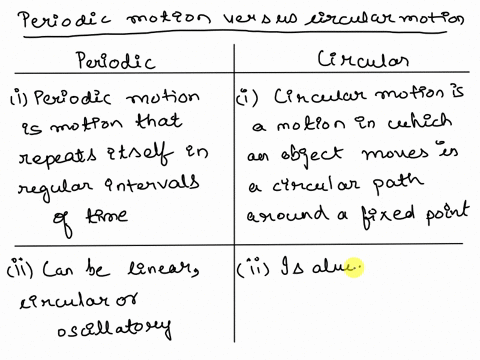 Periodic motion versus circular motion
Periodic
Circular
(i) Periodic motion
is motion that
repeats itself in
regular intervals
of time
(i) Circular motion is
a motion in which
an object moves is
a circular path
around a fixed point
(ii) Can be linear,
circular or
oscillatory
(ii) Is